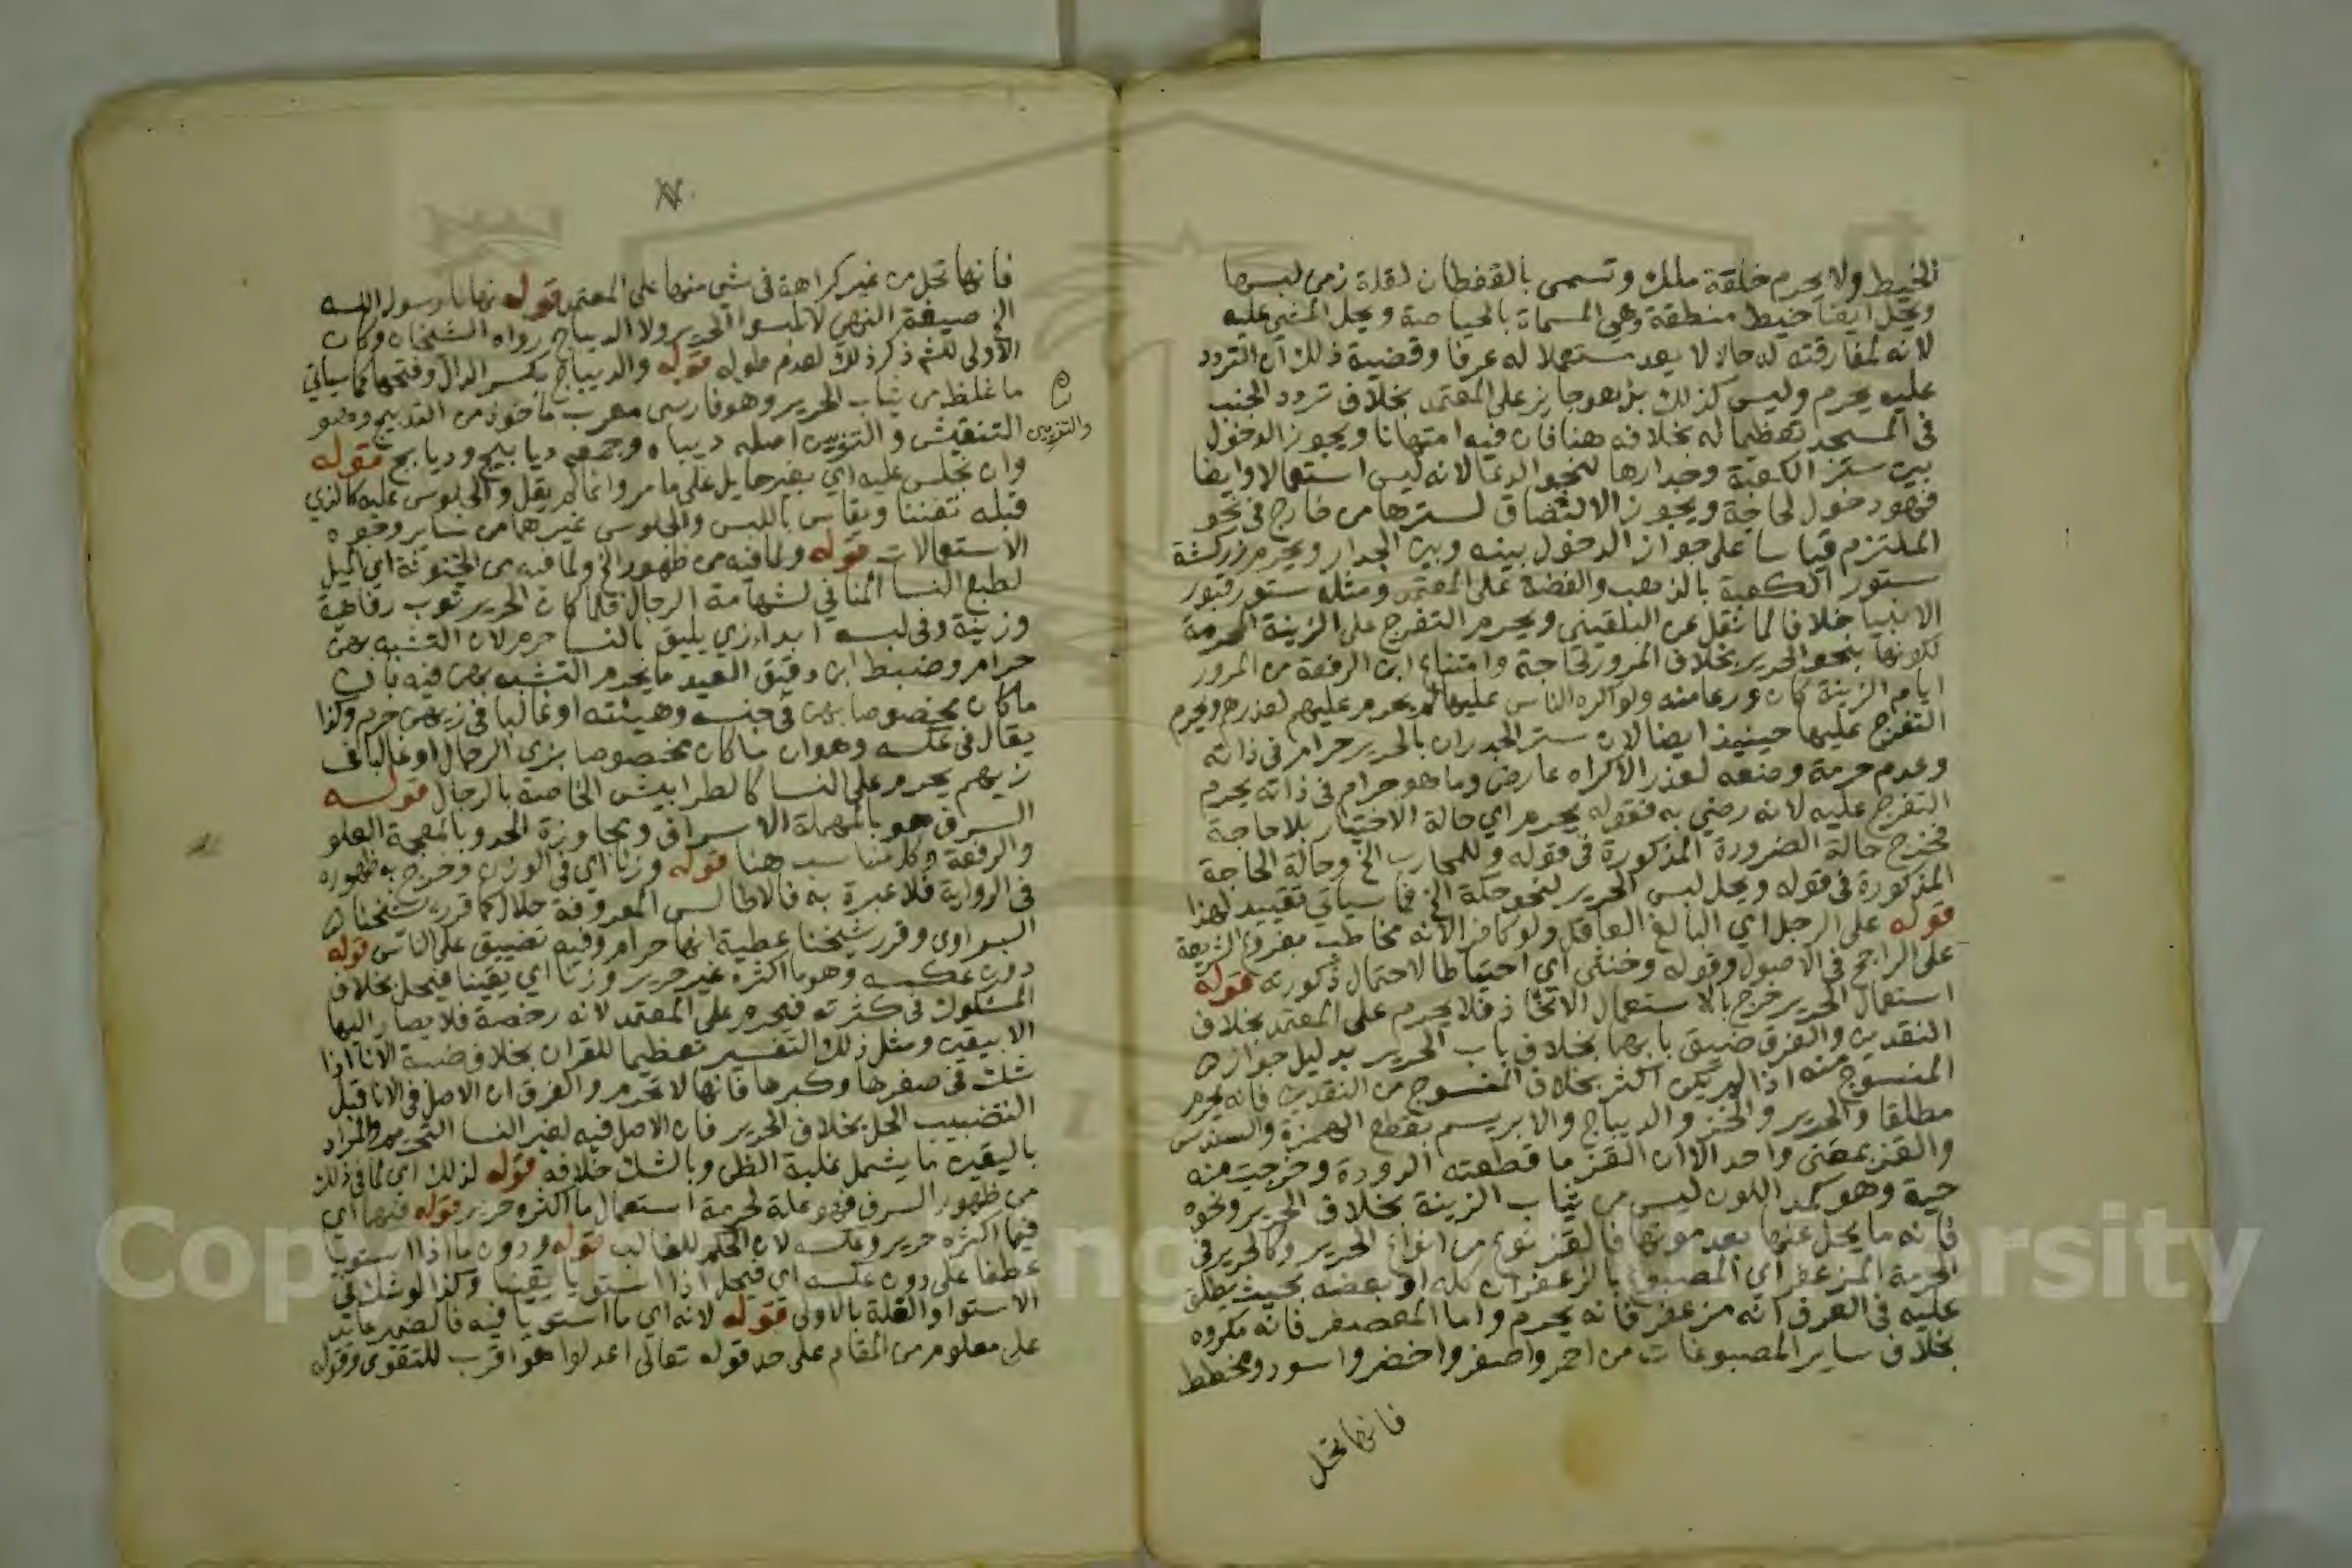 الخيط ولا يحرم خلقة ملك وتسمى بالقفطان لقلة زمن لبسها
ويحل ايضا خيط منطقة وهي المسماة بالحياصة ويحل المشي عليه
لانه لمفارقته له حالا لا يعد مستعملا له عرفا وقضية ذلك ان التردد
عليه يحرم وليس كذلك بل هو جايز على المعتمد بخلاف تردد الجنب
في المسجد تعظيما له بخلافه هنا فان فيه امتهانا ويجوز الدخول
بين ستر الكعبة وجدارها لنحو الدعا لانه ليس استعمالا وايضا
فهو دخول لحاجة ويجوز الالتصاق لسترها من خارج في نحو
الملتزم قياسا على جواز الدخول بينه وبين الجدار ويحرم زركشة
ستور الكعبة بالذهب والفضة على المعتمد ومثله ستور قبور
الانبيا خلافا لما نقل عن البلقيني ويحرم التفرج على الزينة المحرمة
لكونها بنحو الحرير بخلاف المرور لحاجة وامتناع ابن الرفعة من المرور
ايام الزينة كان ورعا منه ولو اكره الناس عليها لم يحرم عليهم لعذرهم ويحرم
التفرج عليها حينيذ ايضا لان ستر الجدران بالحرير حرام في ذاته
وعدم حرمة وضعه لعذر الاكراه عارض وما هو حرام في ذاته يحرم
التفرج عليه لانه رضي به فقوله يحرم اي حالة الاختيار بلا حاجة
فخرج حالة الضرورة المذكورة في قوله وللمحارب الخ وحالة الحاجة
المذكورة في قوله ويحل لبس الحرير لنحو حكة الخ فما سياتي تقييد لهذا
قوله على الرجل اي البالغ العاقل ولو كافرا لانه مخاطب بفروع الشريعة
على الراجح في الاصول وقوله وخنثى اي احتياطا لاحتمال ذكورته قوله
استعمال الحرير خرج بالاستعمال الاتخاذ فلا يحرم على المعتمد بخلاف
النقدين والفرق ضيق بابهما بخلاف باب الحرير بدليل جواز
المنسوج منه اذا لم يكن اكثر بخلاف المنسوج من النقدين فانه يحرم
مطلقا والحرير والخز والديباج والابريسم بقطع الهمزة والسندس
والقز بمعنى واحد الا ان القز ما قطعته الدودة وخرجت منه
حية وهو كمد اللون ليس من ثياب الزينة بخلاف الحرير ونحوه
فانه ما يحل عنها بعد موتها فالقز نوع من انواع الحرير وكالحرير في
الحرمة المزعفر اي المصبوغ بالزعفران كله او بعضه بحيث يطلق
عليه في العرف انه مزعفر فانه يحرم واما المعصفر فانه مكروه
بخلاف ساير المصبوغات من احمر واصفر واخضر واسود ومخطط
فانها تحل
فانها تحل من غير كراهة في شي منها على المعتمد قوله نهانا رسول الله
الخ صيغة النهي لا تلبسوا الحرير ولا الديباج رواه الشيخان وكان
الاولى للشم ذكر ذلك لعدم طوله قوله والديباج بكسر الدال وفتحها كما سياتي
ما غلظ من ثياب الحرير وهو فارسي معرب ماخوذ من التدبيج وهو
التنقيش والتزيين اصله ديباه وجمعه ديابيج ودبابج قوله
والتزيين
وان نجلس عليه اي بغير حايل على ما مر وانما لم يقل والجلوس عليه كالذي
قبله تفننا ويقاس باللبس والجلوس غيرهما من ساير وجوه
الاستعمالات قوله ولما فيه من ظهور الخ ولما فيه من الخنوثة اي الميل
لطبع النسا المنافي لشهامة الرجال فلما كان الحرير ثوب رفاهية
وزينة وفي لبسه ابداء زي يليق بالنسا حرم لان التشبه بهن
حرام وضبط ابن دقيق العيد ما يحرم التشبه بهن فيه بان
ما كان مخصوصا بهن في جنسه وهيئته او غالبا في زيهن حرم وكذا
يقال في عكسه وهو ان ما كان مخصوصا بزي الرجال او غالبا في
زيهم يحرم على النسا كالطرابيش الخاصة بالرجال قوله
السرف هو بالمهملة الاسراف ومجاوزة الحد وبالمعجمة العلو
والرفعة وكل مناسب هنا قوله وزنا اي في الوزن وخرج به ظهوره
في الرواية فلا عبرة به فالاطالس المعروفة حلال كما قرره شيخنا
البراوى وقرر شيخنا عطية انها حرام وفيه تضييق على الناس قوله
دون عكسه وهو ما اكثره غير حرير وزنا اي يقينا فيحل بخلاف
المشكوك في كثرته فيحرم على المعتمد لانه رخصة فلا يصار اليها
الا بيقين ومثل ذلك التفسير تعظيما للقران بخلاف ضبة الانا اذا
شك في صغرها وكبرها فانها لا تحرم والفرق ان الاصل في الانا قبل
التضبيب الحل بخلاف الحرير فان الاصل فيه لغير النسا التحريم والمراد
باليقين ما يشمل غلبة الظن وبالشك خلافه قوله لذلك اي لما في ذلك
من ظهور السرف فهو علة لحرمة استعمال ما اكثره حرير قوله فيهما اي
فيما اكثره حرير وعكسه لان الحكم للغالب قوله ودون ما اذا استويا
عطفا على دون عكسه اي فيحل اذا استويا يقينا وكذا لو شك في
الاستوا والقلة بالاولى قوله لانه اي ما استويا فيه فالضمير عايد
على معلوم من المقام على حد قوله تعالى اعدلوا هو اقرب للتقوى وقوله
Copyright © King Saud University